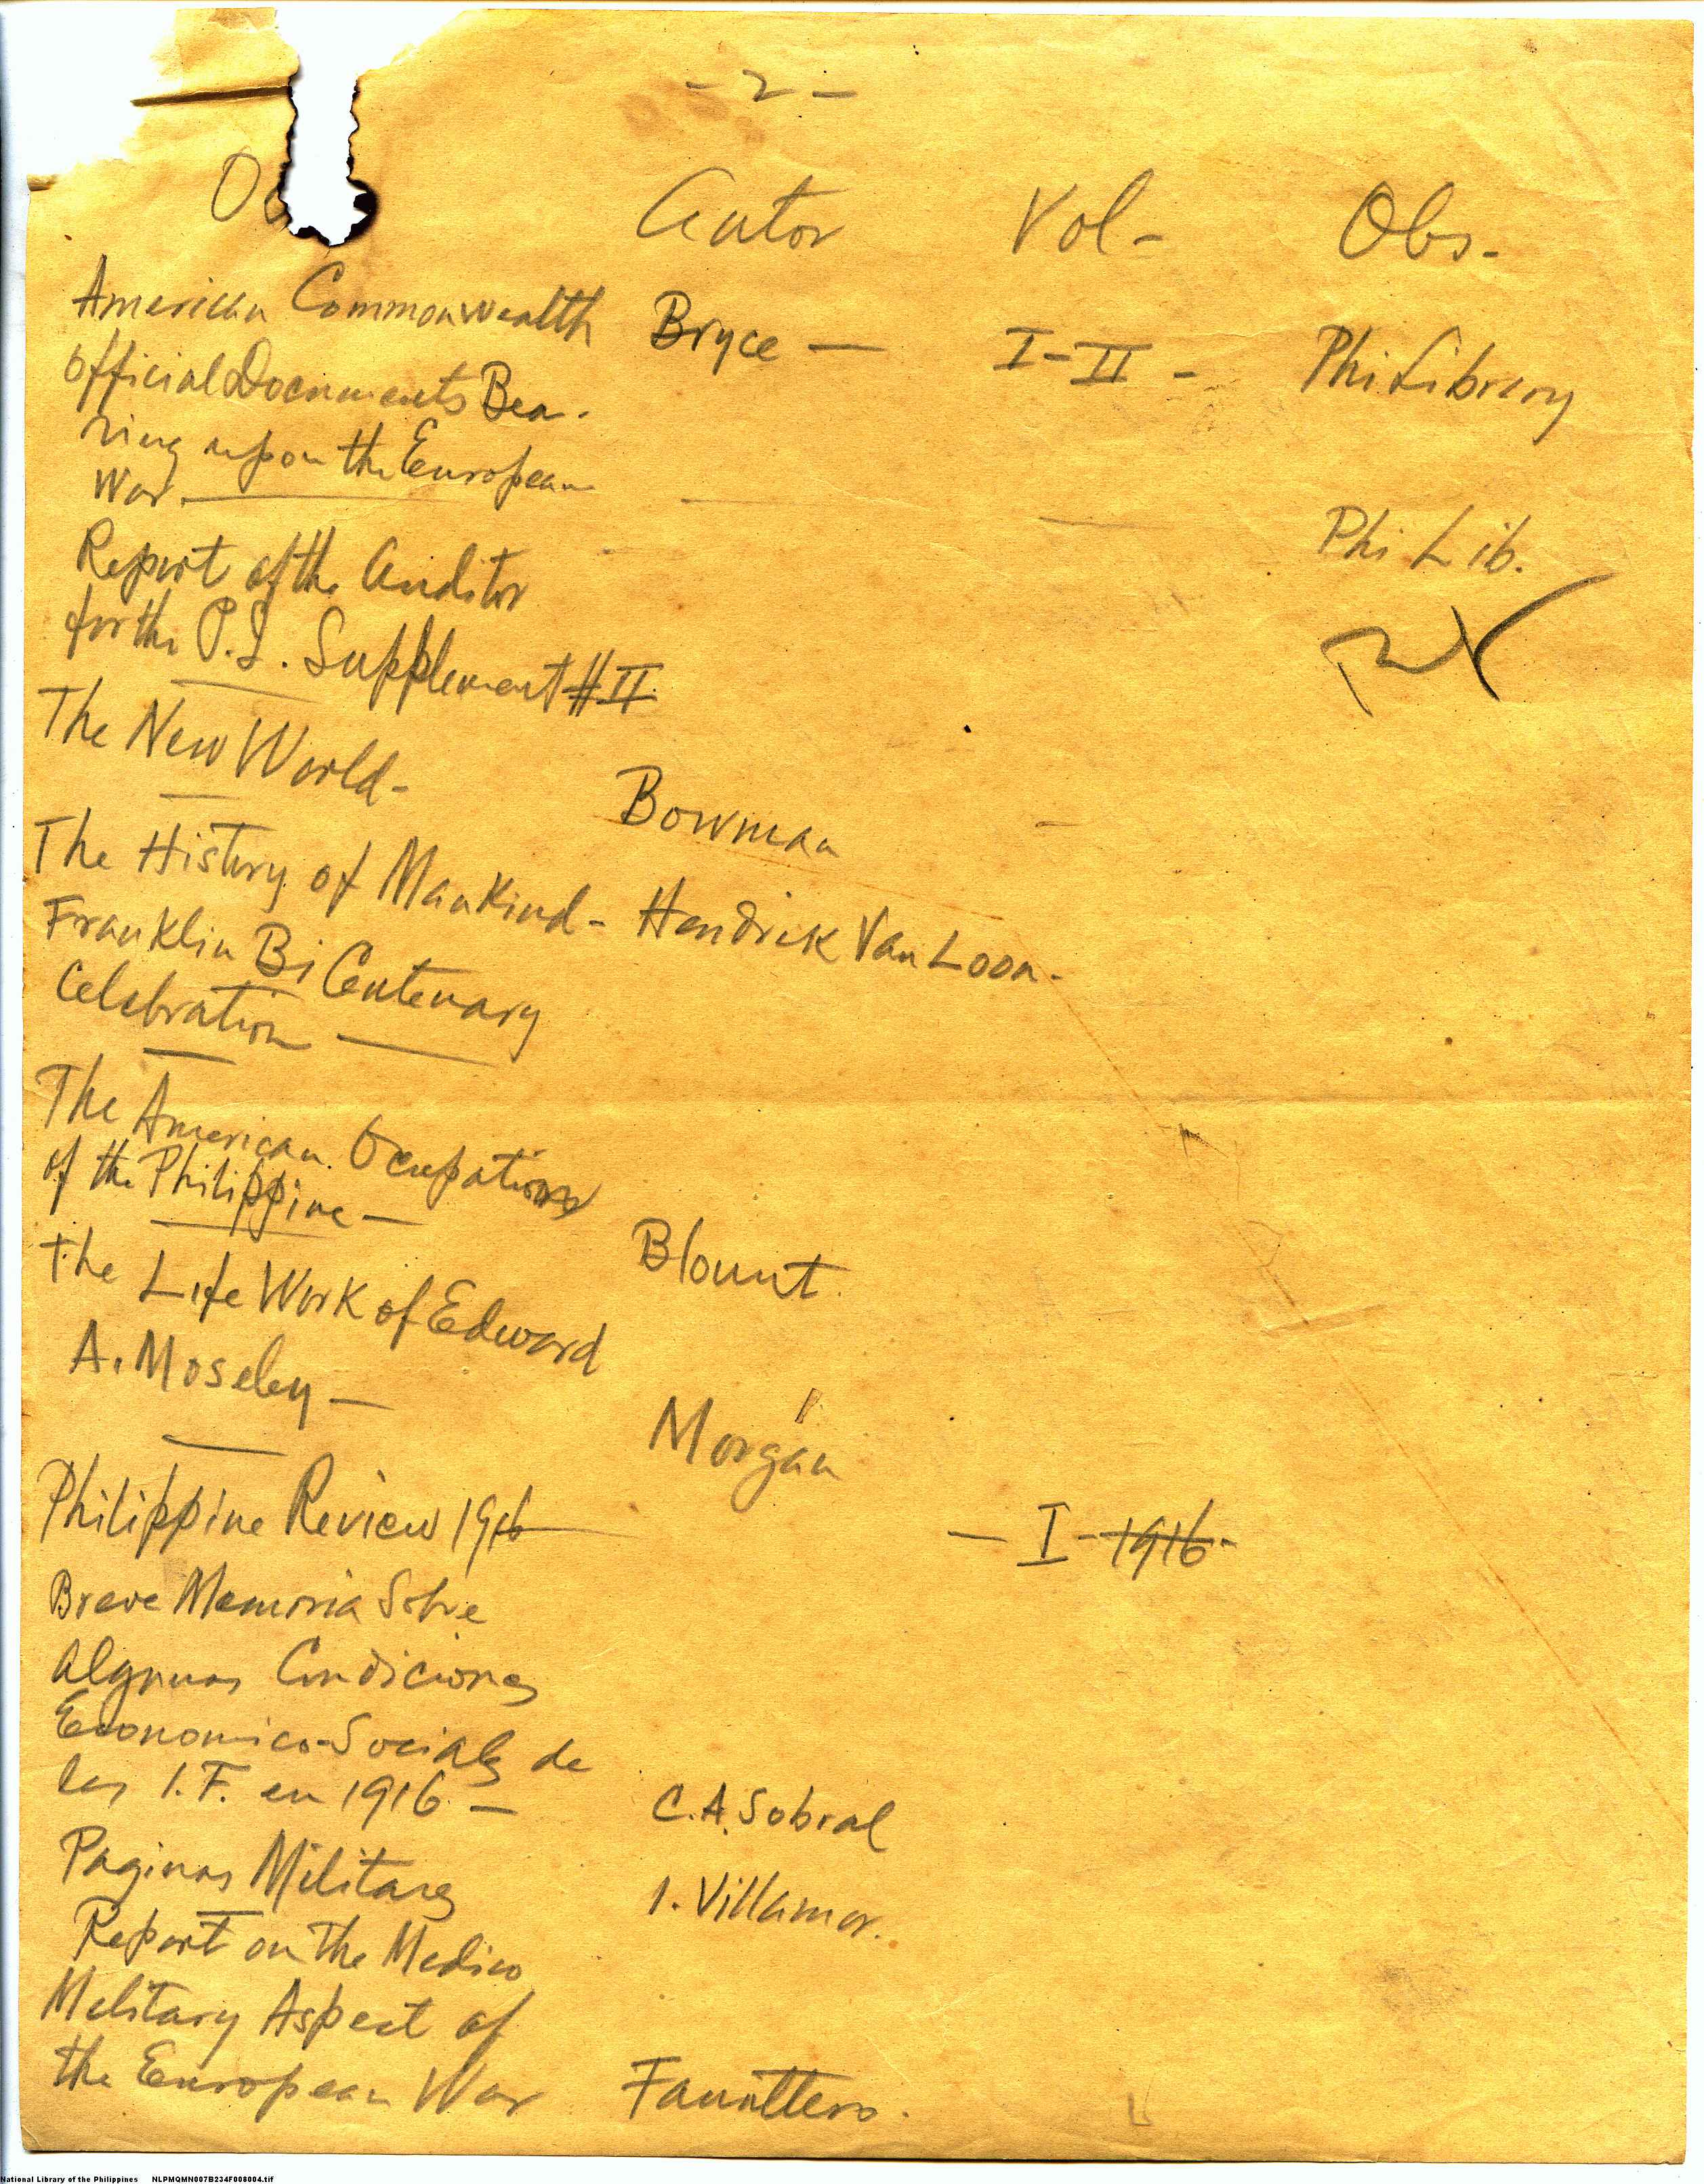 - 2 -
Autor Vol- Obs.
American Commonwealth Bryce — I-II - Phi Library
Official Documents Bea-
ring upon the European
War. Phi Lib.
Report of the Auditor
for the P.I. Supplement #II
The New World- Bowman -
The History of Mankind- Hendrik Van Loon.
Franklin Bi Centenary
Celebration —
The American Ocupation
of the Philippine — Blount.
The Life Work of Edward
A. Moseley — Morgan
Philippine Review 1916 — I - 1916-
Breve Memoria Sobre
Algunas Condiciones
Economico-Sociales de
las I.F. en 1916 — C.A. Sobral
Paginas Militares I. Villamor.
Report on the Medico
Military Aspect of
the European War
National Library of the Philippines NLPMQMN007B234F008004.tif